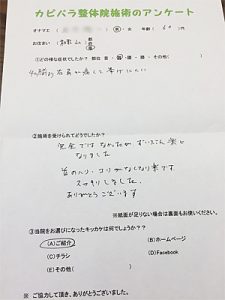 カピバラ整体院施術のアンケート
オナマエ（　　　）（男・女　年齢（60）代
お住まい（和歌山　都道府県
①どの様な症状でしたか？　部位 首・肩・腰・その他
4ヶ月前から右肩が痛くて挙げにくい
②施術を受けられてどうでしたか？
完全ではなかったが ずいぶん楽に
なりました
首のハリ・コリがなくなり楽です
スッキリしました。
ありがとうございます
※紙面が足りない場合は裏面もお使いください。
③当院をお選びになったキッカケは何でしょうか？？？
(A)ご紹介　(B)ホームページ
(C)チラシ　(D)Facebook
(E)その他（　　　）
※ ご協力して頂き、ありがとうございました。